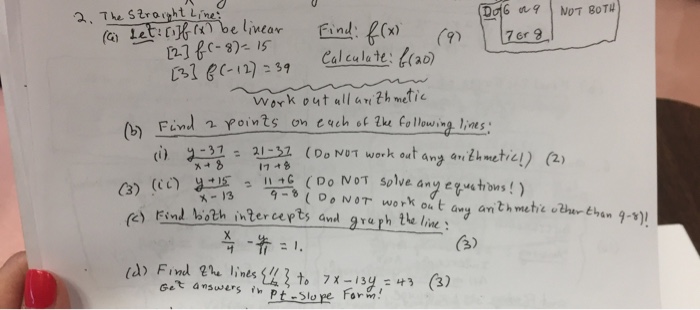 2. The Straight Line:
Do 6 or 9 NOT BOTH
7 or 8
(a) Let: [1] f(x) be linear Find: f(x) (9)
[2] f(-8) = 15 Calculate: f(20)
[3] f(-12) = 39
Work out all arithmetic
(b) Find 2 points on each of the following lines:
(i) y-37/x+8 = 21-37/17+8 (Do NOT work out any arithmetic!) (2)
(3) (ii) y+15/x-13 = 11+6/9-8 (Do NOT solve any equations!)
(Do NOT work out any arithmetic other than 9-8)!
(c) Find both intercepts and graph the line:
x/4 - y/11 = 1. (3)
(d) Find the lines { } to 7x-13y = 43 (3)
Get answers in Pt-Slope Form!